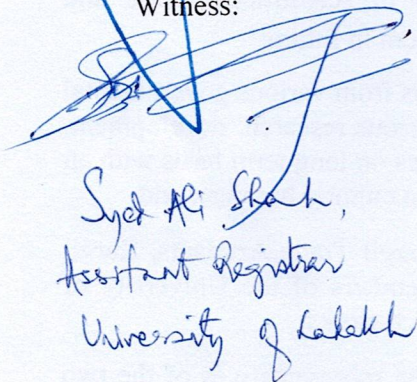 Witness:
Syed Ali Shah,
Assistant Registrar
University of Ladakh